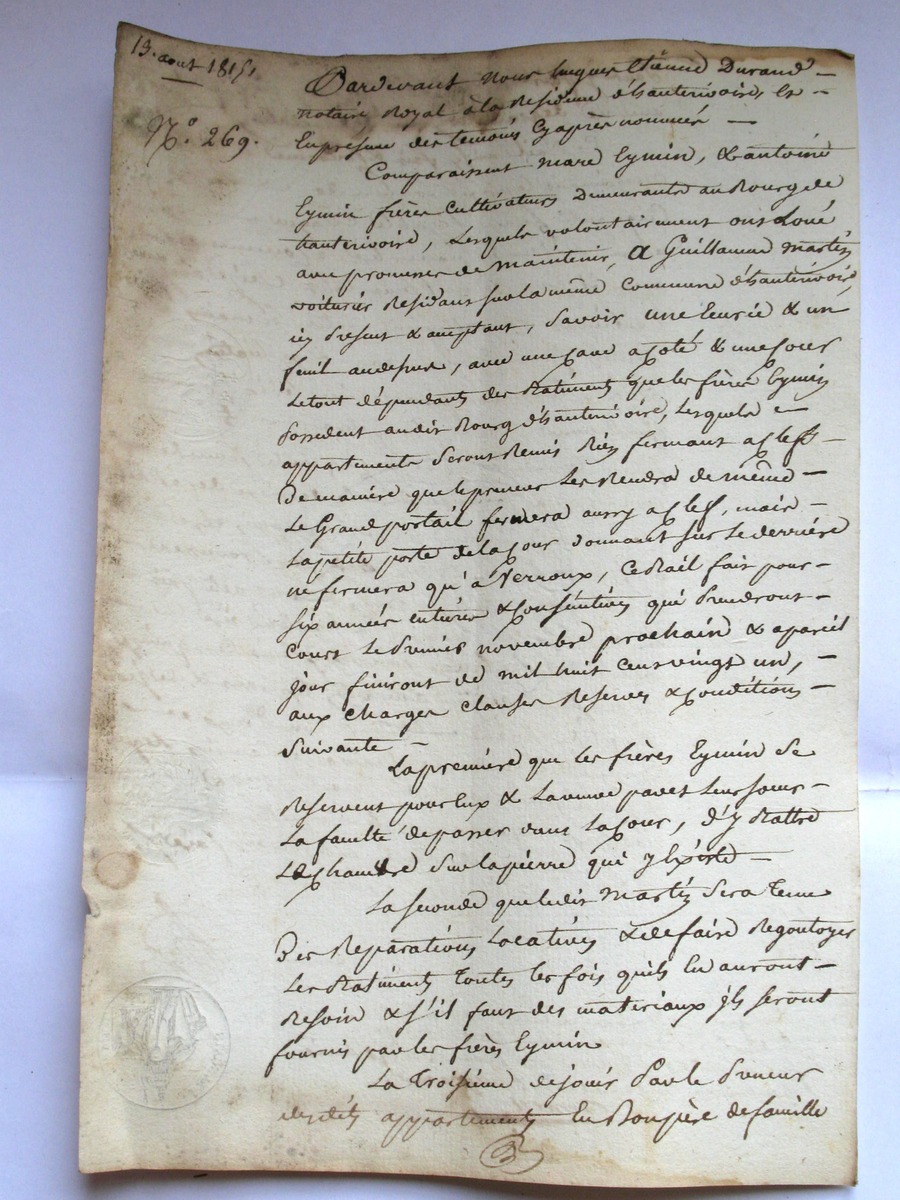 13. aout 1815,
N.º 269.
Pardevant nous hugues Etienne Durand —
notaire Royal à la Residence d'hauterivoire, Et —
En presence des temoins Cyaprès nommés —
Comparaissent marc Eymin, & antoine
Eymin frères Cultivateurs Demeurants au Bourg de
hauterivoire, Lesquels volontairement ont Loué
avec promesse de maintenir, a Guillaume Martin
voiturier Residant sur la même Commune d'hauterivoire,
icy Present & acceptant, Savoir une Ecurie & un
fenil au dessus, avec une cave a Coté & une Cour
Le tout dépendants des Batiments que les frères Eymin
Possedent au dit Bourg d'hauterivoire, Lesquels —
appartements Seront Remis Bien fermant a Clefs —
De maniere que le preneur Les Rendra de même —
Le Grand portail fermera aussy a Clef, mais —
La petite porte de la Cour Donnant sur Le derrière
né fermera qu'à Verroux, Ce Bail fait pour —
Six années entières & Consécutives qui Prendront —
Cours Le Premier novembre prochain & a pareil
jour finiront de mil huit Cent vingt un, —
aux Charges Clauses Reserves & Conditions —
Suivante —
La première que les frères Eymin Se
Reservent pour Eux & La veuve Leur Soeur —
La faculté de passer dans La Cour, d'y Battre
Le Chanvre Sur la pierre qui y Existe —
La Seconde que ledit Martin Sera Tenu
Des Reparations Locatives & de faire Regoutoyer
Les Batiments Toutes les fois quils En auront —
Besoin & s'il faut des materiaux ils Seront
fournis par les frères Eymin
La Troisième de jouir Par le Preneur
desdits appartements En Bon père de famille